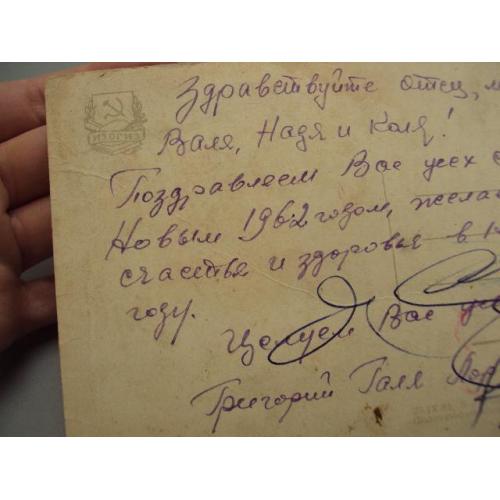 ИЗОГИЗ
Здравствуйте отец, м
Валя, Надя и Коля!
Поздравляем Вас усех с
Новым 1962 годом, желае
счастья и здоровья в
году.
Целуем Вас усе
Григорий Галя